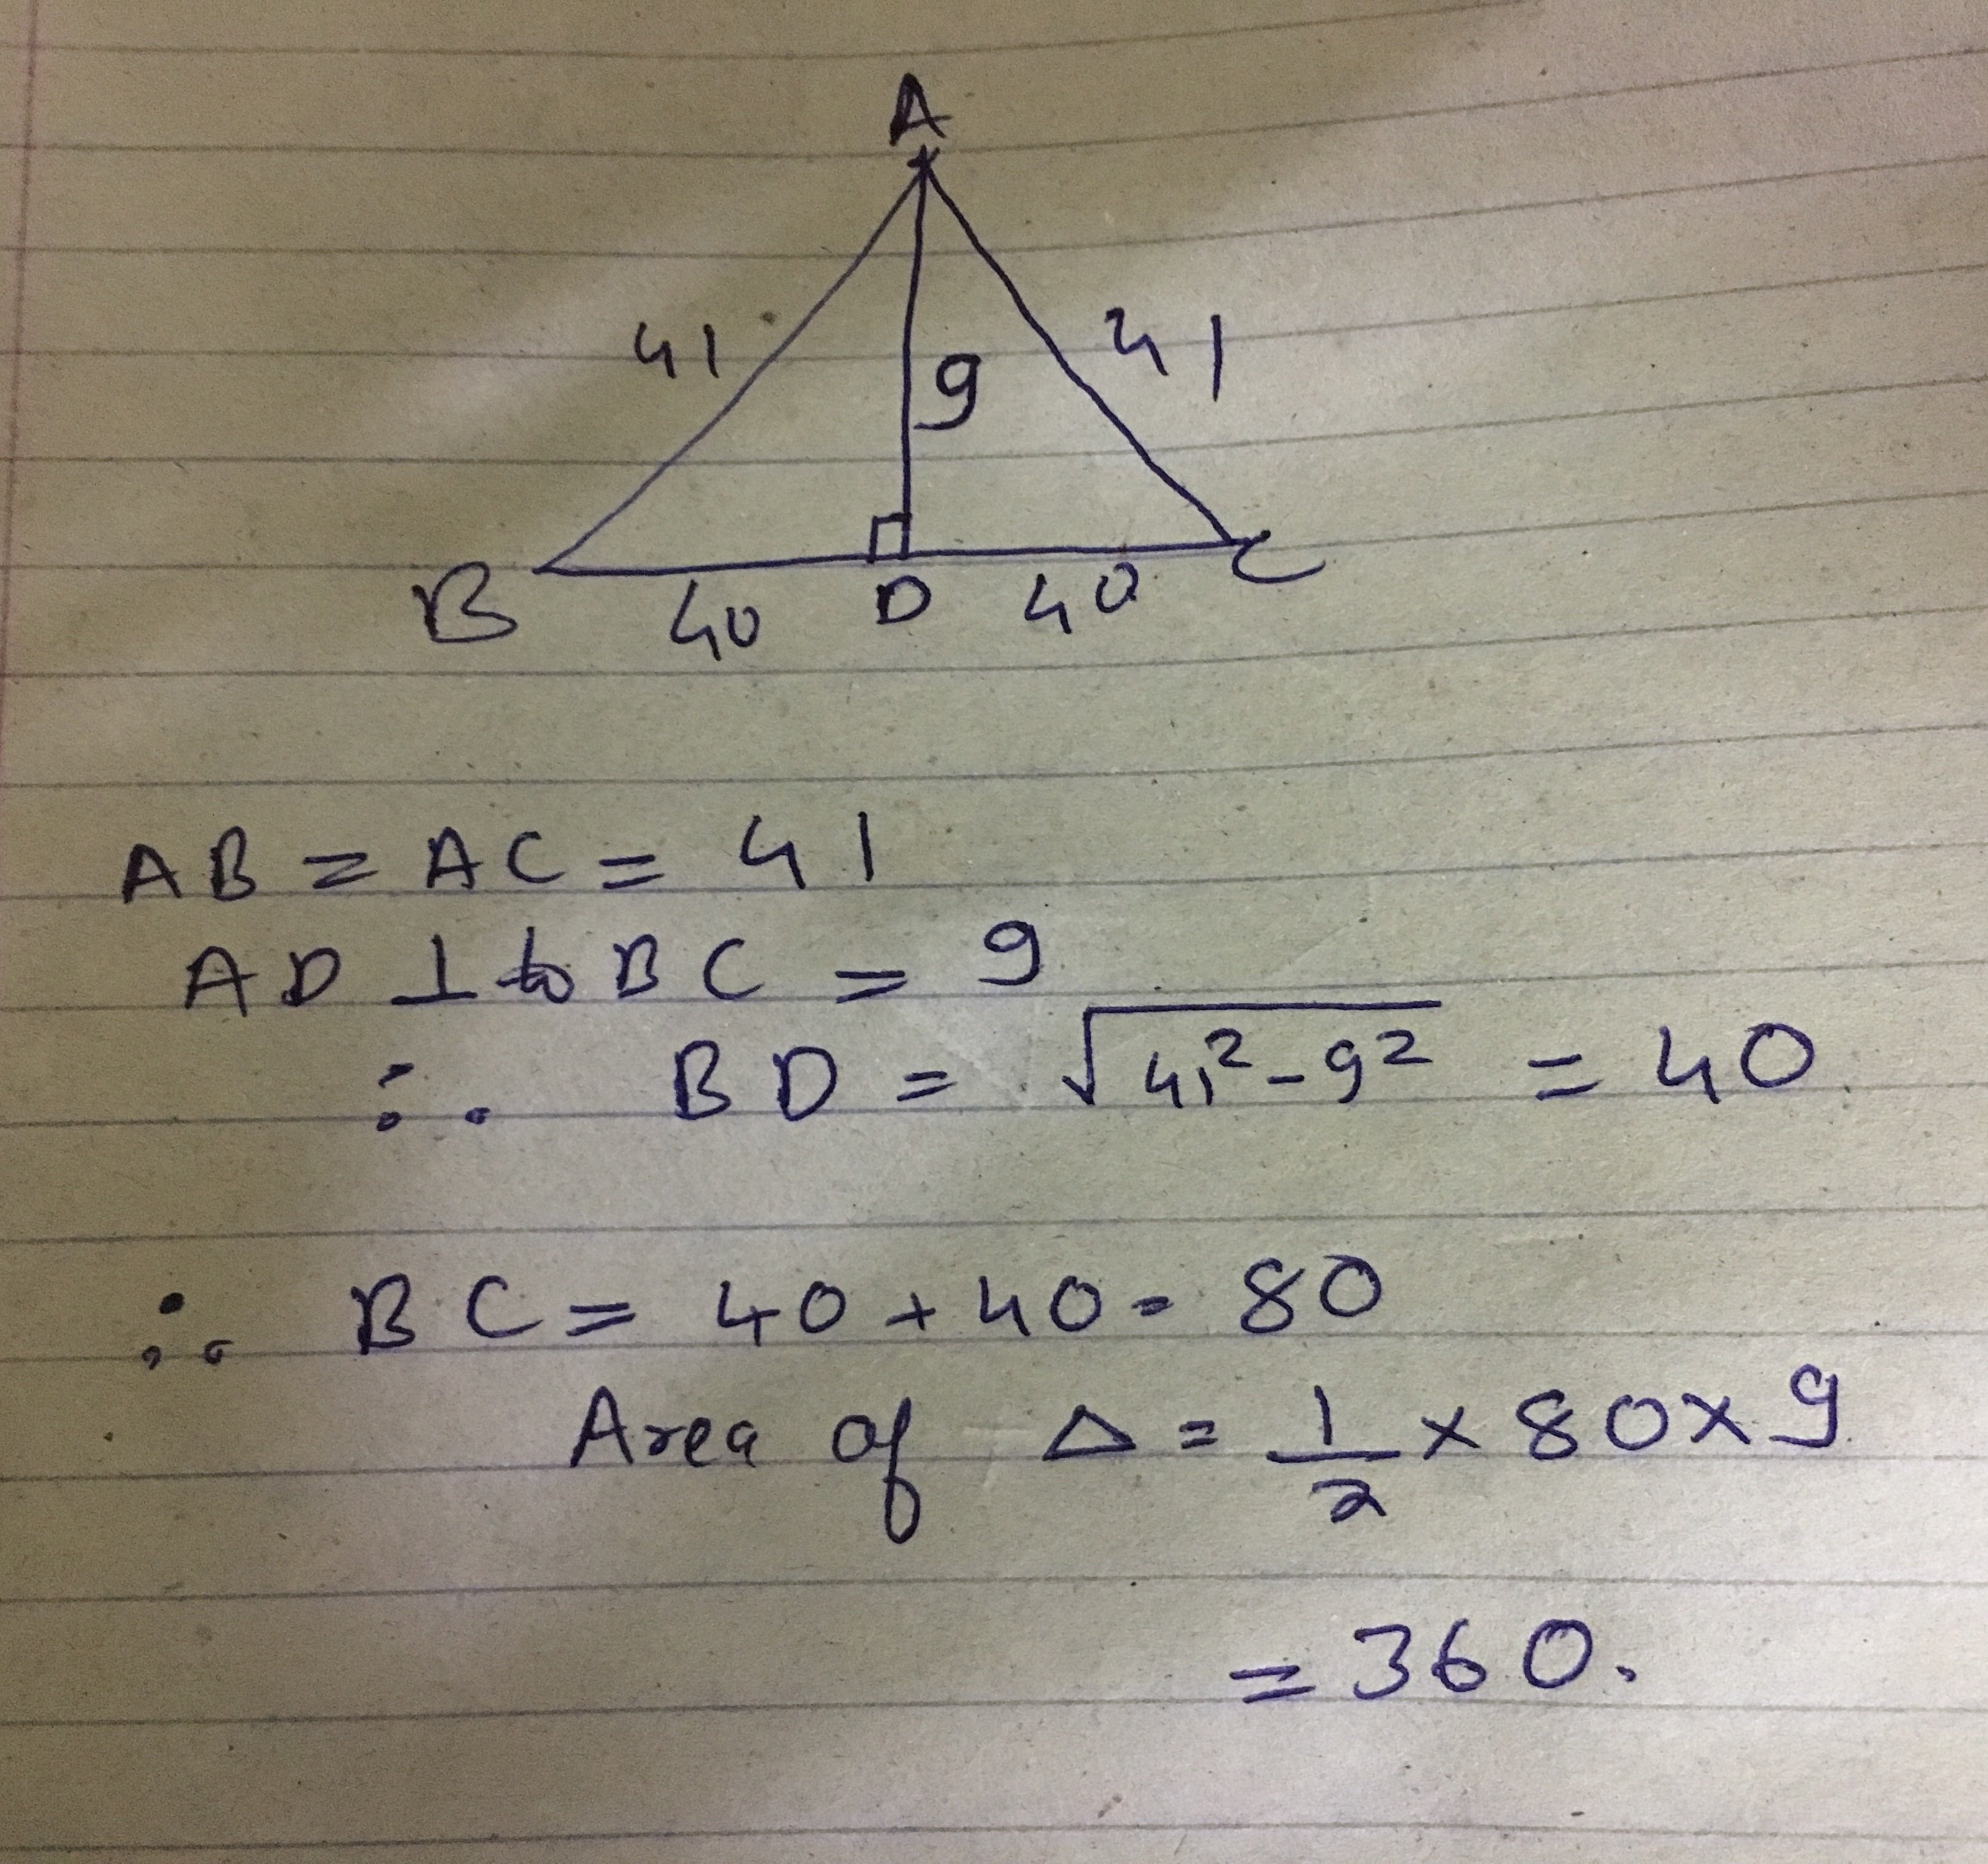 A
41 9 41
B 40 D 40 C
AB = AC = 41
AD ⊥ to BC = 9
∴ BD = √(41² - 9²) = 40
∴ BC = 40 + 40 = 80
Area of △ = 1/2 × 80 × 9
= 360.